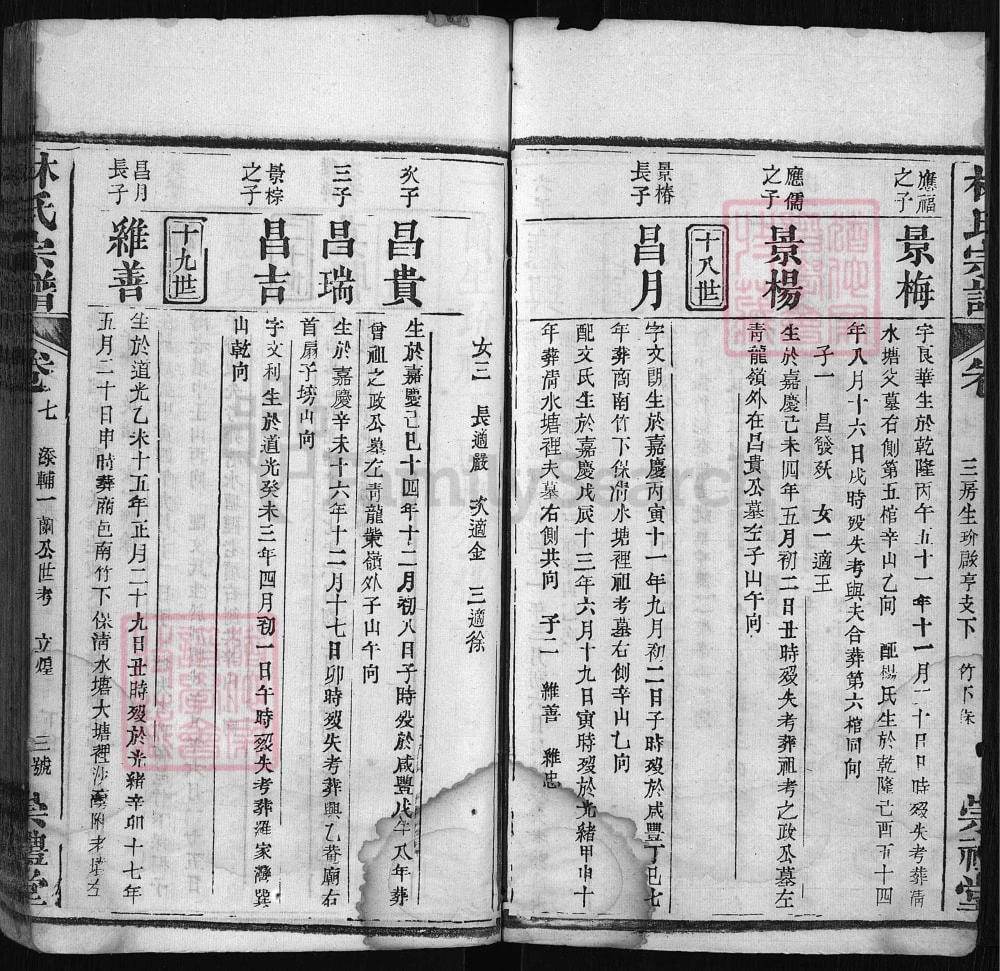 三房生玠啟亨支下 竹下保
應福之子 景梅
字良華生於乾隆丙午五十一年十一月二十日 時歿失考葬清
水塘父墓右側第五棺辛山乙向 配楊氏生於乾隆己酉五十四
年八月十六日戌時歿失考與夫合葬第六棺同向
子一 昌發殀 女一適王
應儒之子 景楊
生於嘉慶己未四年五月初二日丑時歿失考葬祖考之政公墓左
青龍嶺外在昌貴公墓左子山午向
十八世
景椿長子 昌月
字文朗生於嘉慶丙寅十一年九月初二日子時歿於咸豐丁巳七
年葬商南竹下保清水塘裡祖考墓右側辛山乙向
配文氏生於嘉慶戊辰十三年六月十九日寅時歿於光緒甲申十
年葬清水塘裡夫墓右側共向 子二 維善 維忠
女三 長適嚴 次適金 三適徐
次子 昌貴
生於嘉慶己巳十四年十二月初八日子時歿於咸豐戊午八年葬
曾祖之政公墓左青龍嶺外子山午向
三子 昌瑞
生於嘉慶辛未十六年十二月十七日卯時歿失考葬興乙菴廟右
首扇子塝山向
景棕之子 昌吉
字文利生於道光癸未三年四月初一日午時歿失考葬羅家灣巽
山乾向
十九世
昌月長子 維善
生於道光乙未十五年正月二十九日丑時歿於光緒辛卯十七年
五月二十日申時葬商邑南竹下保清水塘大塘裡沙灣附老墳左
林氏宗譜 卷七 深輔一蘭公世考 立煌 三號 崇禮堂